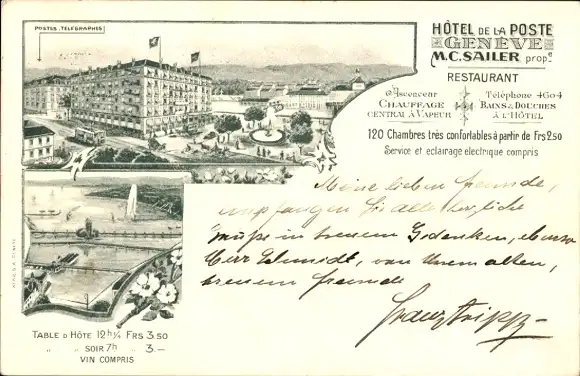 POSTES TÉLÉGRAPHES
HÔTEL DE LA POSTE
GENÈVE
M.C. SAILER propᵉ
RESTAURANT
Ascenceur
CHAUFFAGE
CENTRAL À VAPEUR
Téléphone 4604
BAINS & DOUCHES
À L'HÔTEL
120 Chambres très confortables à partir de Frs 2.50
Service et eclairage electrique compris
Meine lieben Freunde,
empfangen Sie alle herzliche
Grüße in treuem Gedenken, ebenso
Herr Schmidt, von Ihrem alten,
treuem Freunde
TABLE D HÔTE 12 h ¼ FRS 3.50
„ „ SOIR 7h „ 3.-
VIN COMPRIS